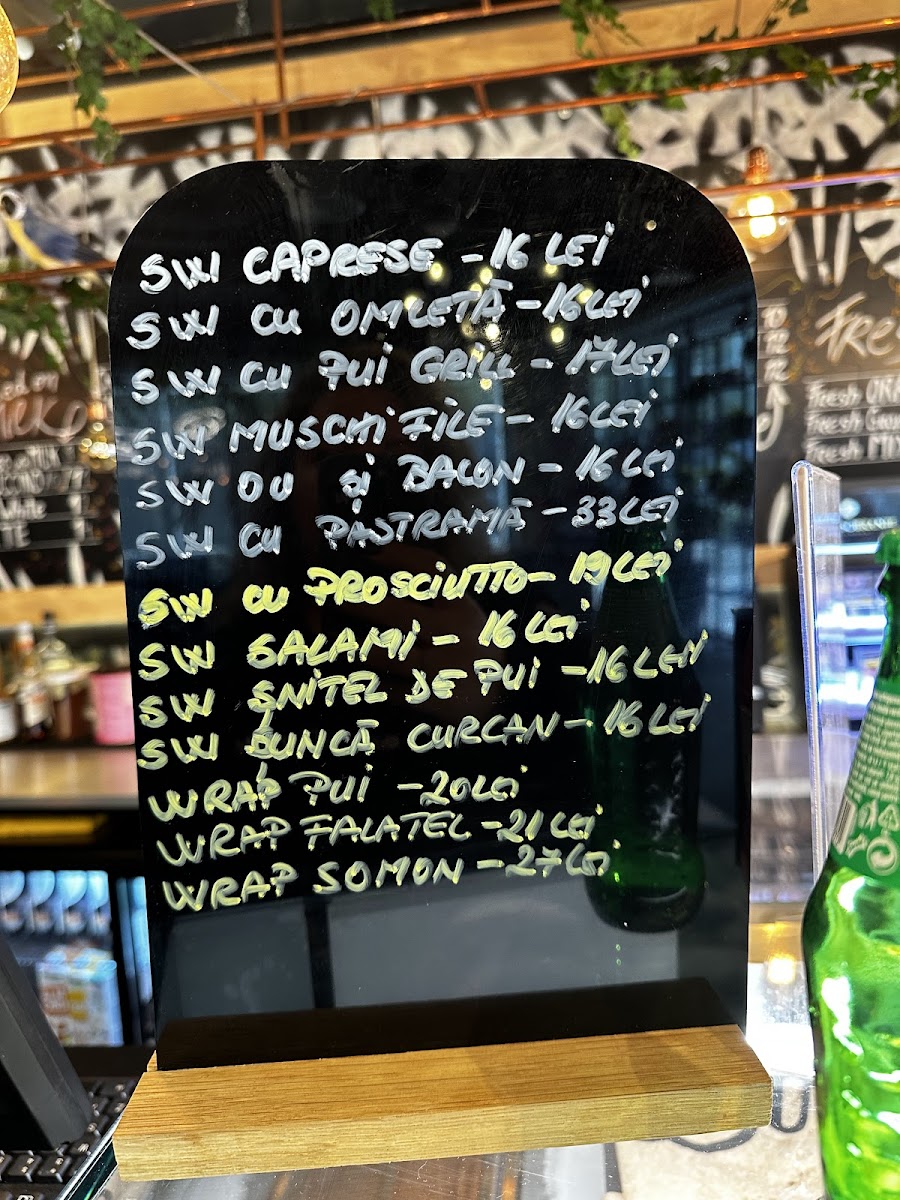 SW CAPRESE - 16 LEI
SW CU OMLETĂ - 16 LEI
SW CU PUI GRILL - 17 LEI
SW MUSCHI FILE - 16 LEI
SW OU ȘI BACON - 16 LEI
SW CU PASTRAMĂ - 33 LEI
SW CU PROSCIUTTO - 19 LEI
SW SALAMI - 16 LEI
SW ȘNIȚEL DE PUI - 16 LEI
SW ȘUNCĂ CURCAN - 16 LEI
WRAP PUI - 20 LEI
WRAP FALAFEL - 21 LEI
WRAP SOMON - 27 LEI
Fresh
Fresh
Fresh